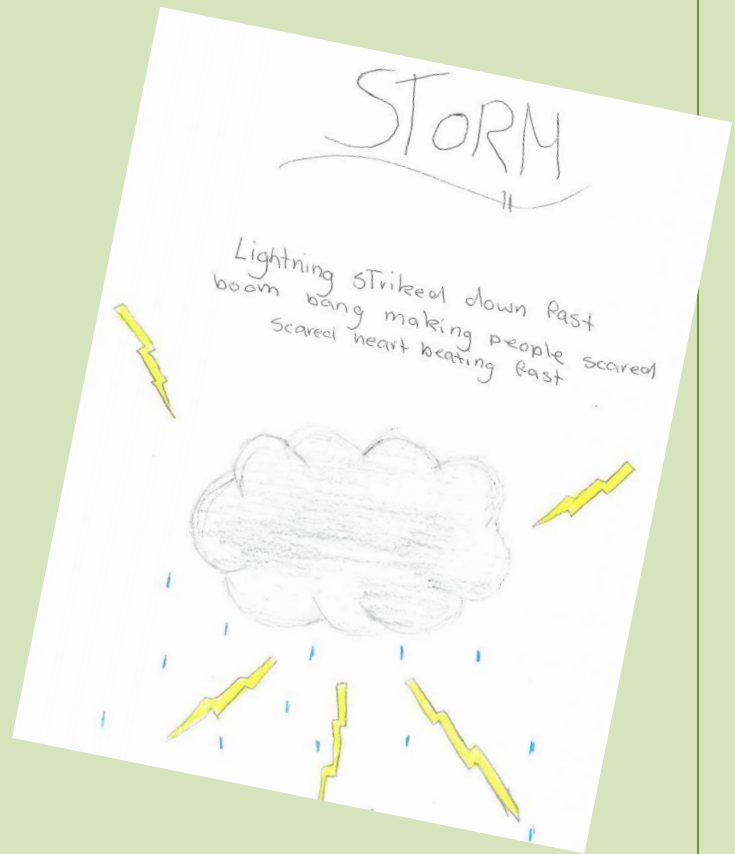 STORM
Lightning striked down fast
boom bang making people scared
scared heart beating fast